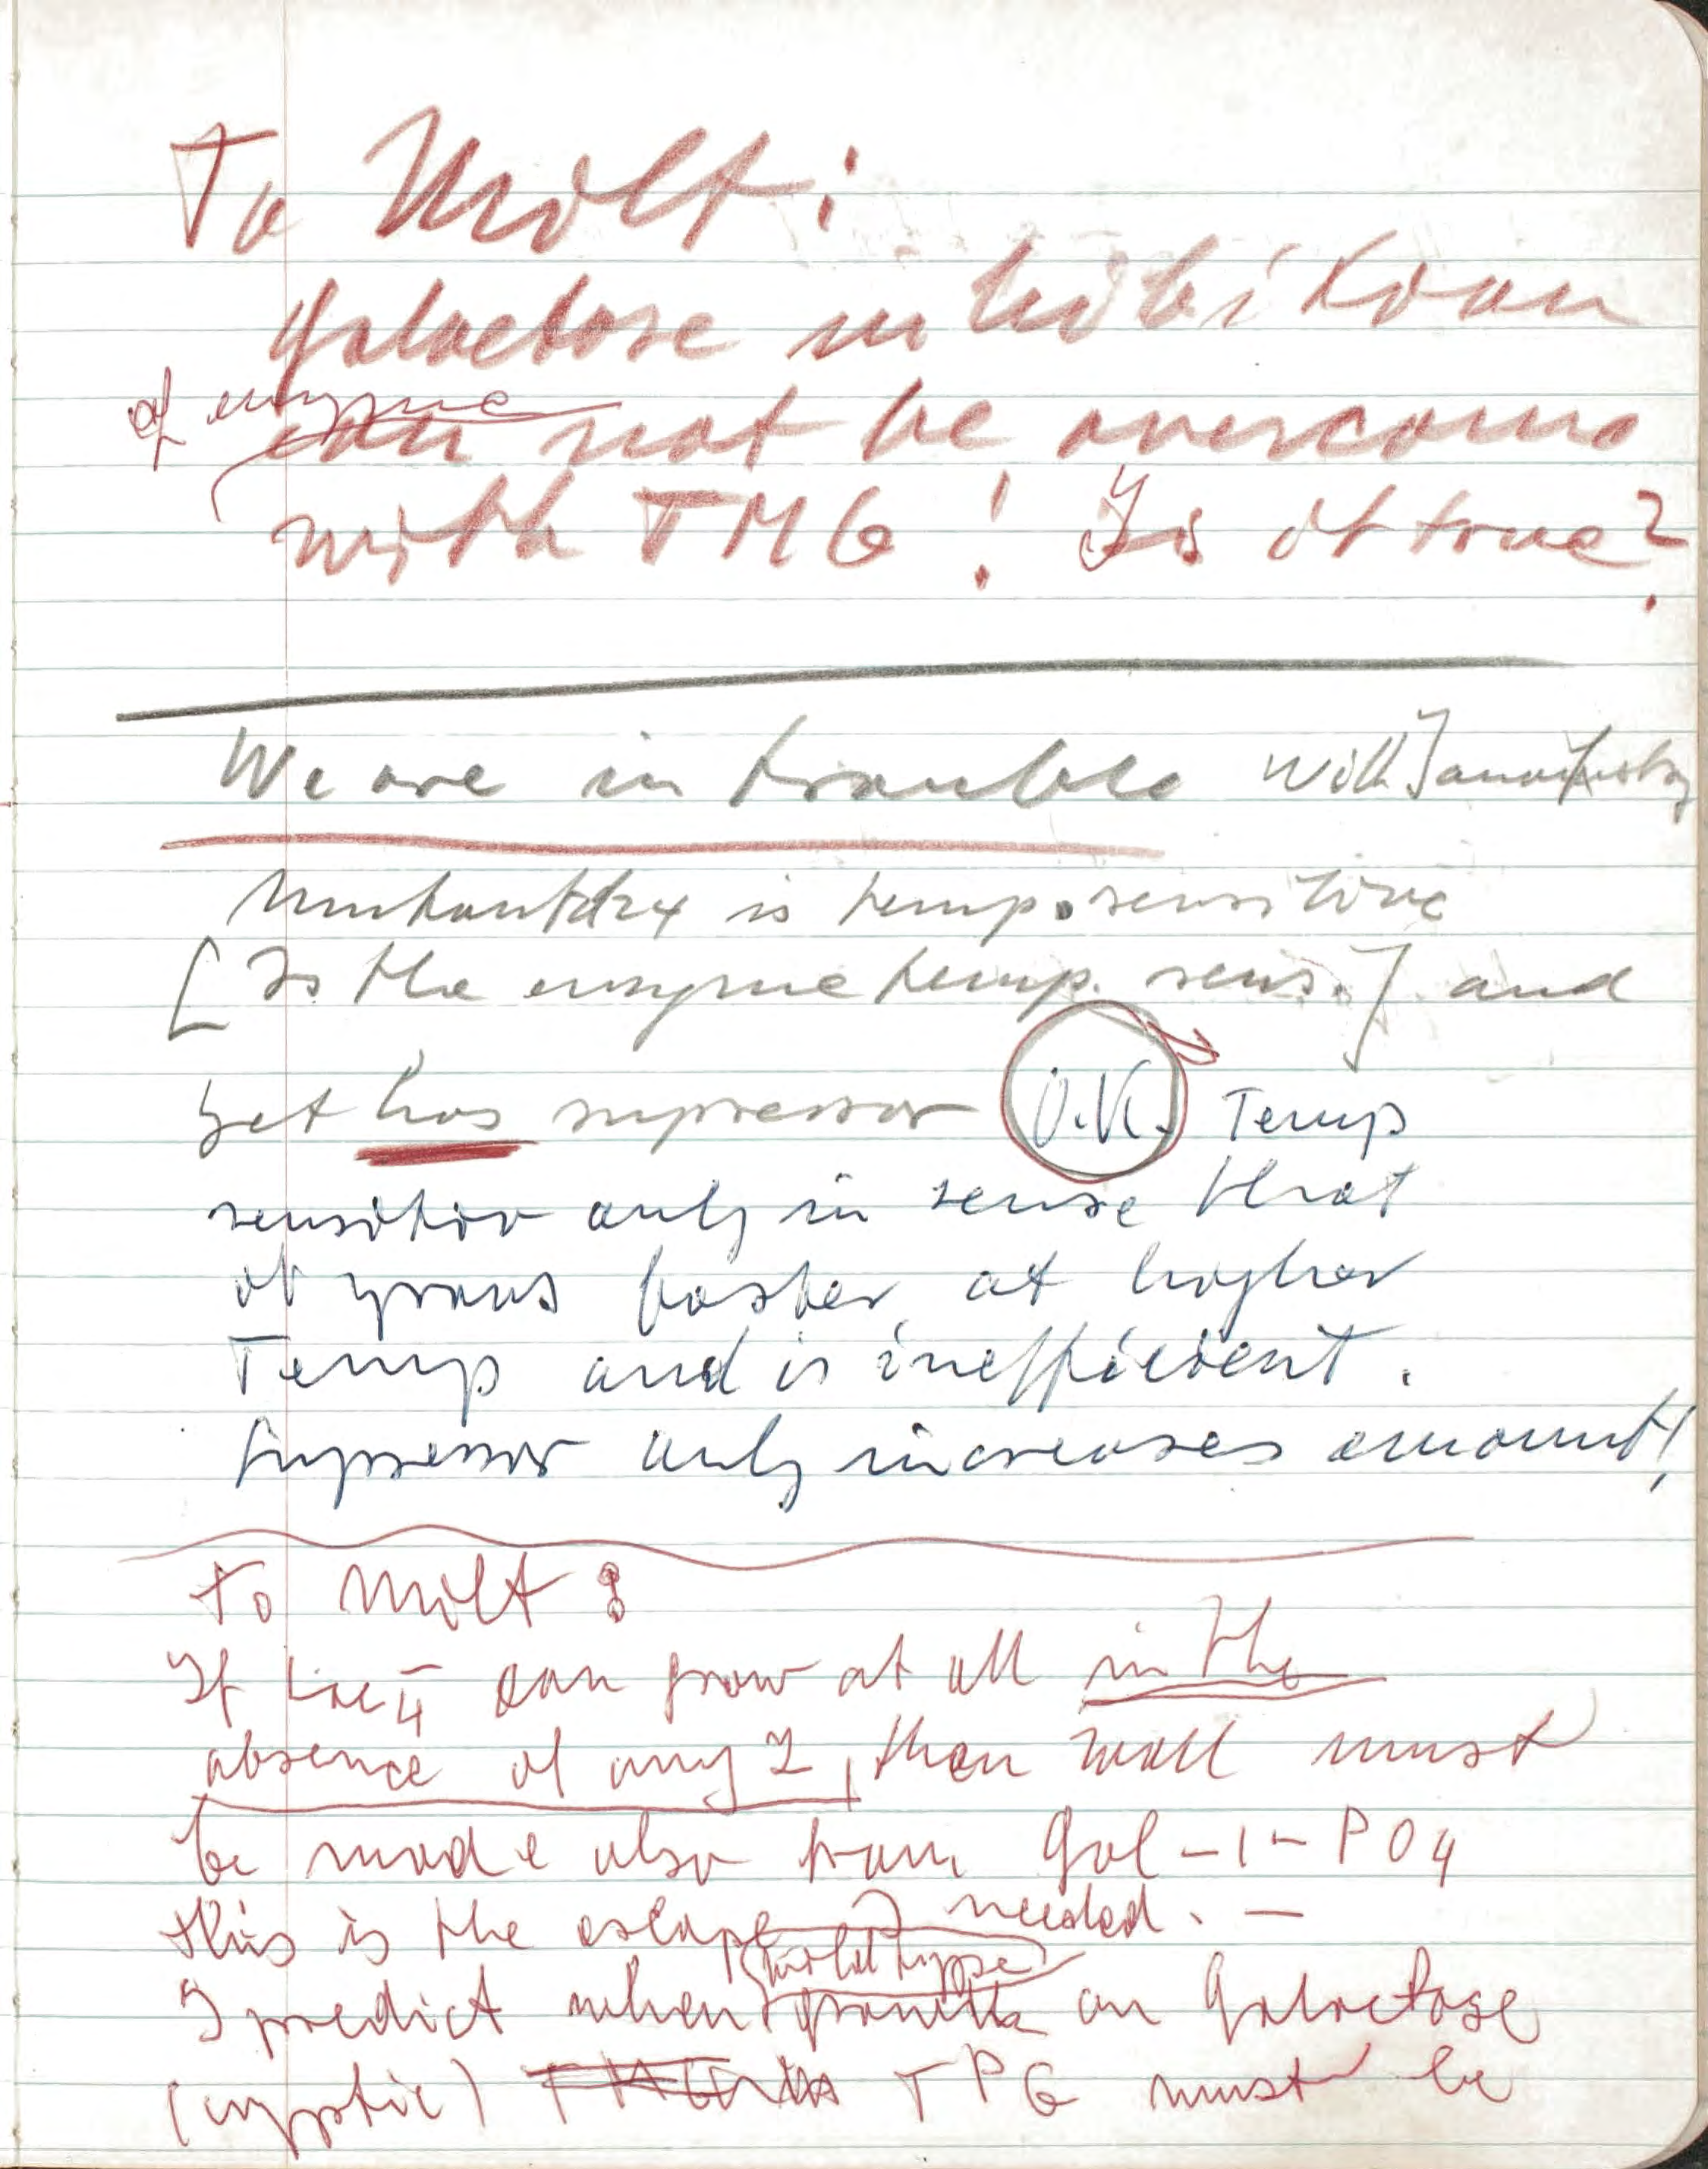 To Milt:
galactose inhibition
of enzyme
can not be overcome
with TMG! Is it true?
We are in trouble with Yanofsky
Mutant td24 is temp. sensitive
[Is the enzyme temp. sens.] and
yet has supressor O.K. Temp
sensitiv only in sense that
it grows faster at higher
Temp and is inefficient.
Supressor only increases amount!
To Milt:
If Lac 4 - can grow at all in the
absence of any Z, then wall must
be made also from Gal-1-PO4
this is the escape I needed. —
wild type
I predict when grown on Galactose
(cryptic) TPG must be